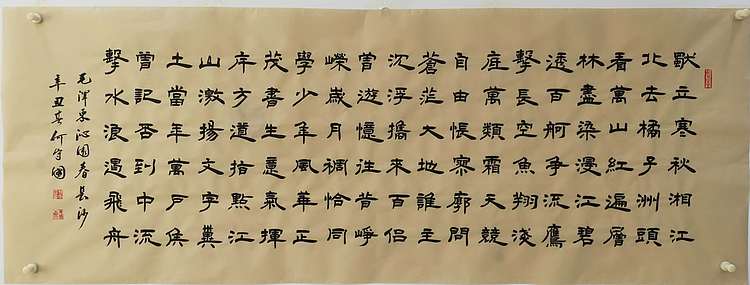 獨立寒秋湘江
北去橘子洲頭
看萬山紅遍層
林盡染漫江碧
透百舸争流鷹
擊長空魚翔淺
底萬類霜天競
自由悵寥廓問
蒼茫大地誰主
沉浮攜來百侶
曾遊憶往昔崢
嶸歲月稠恰同
學少年風華正
茂書生意氣揮
斥方遒指點江
山激揚文字糞
土當年萬戶侯
曾記否到中流
擊水浪遏飛舟
毛澤東沁園春長沙
辛丑春何守國